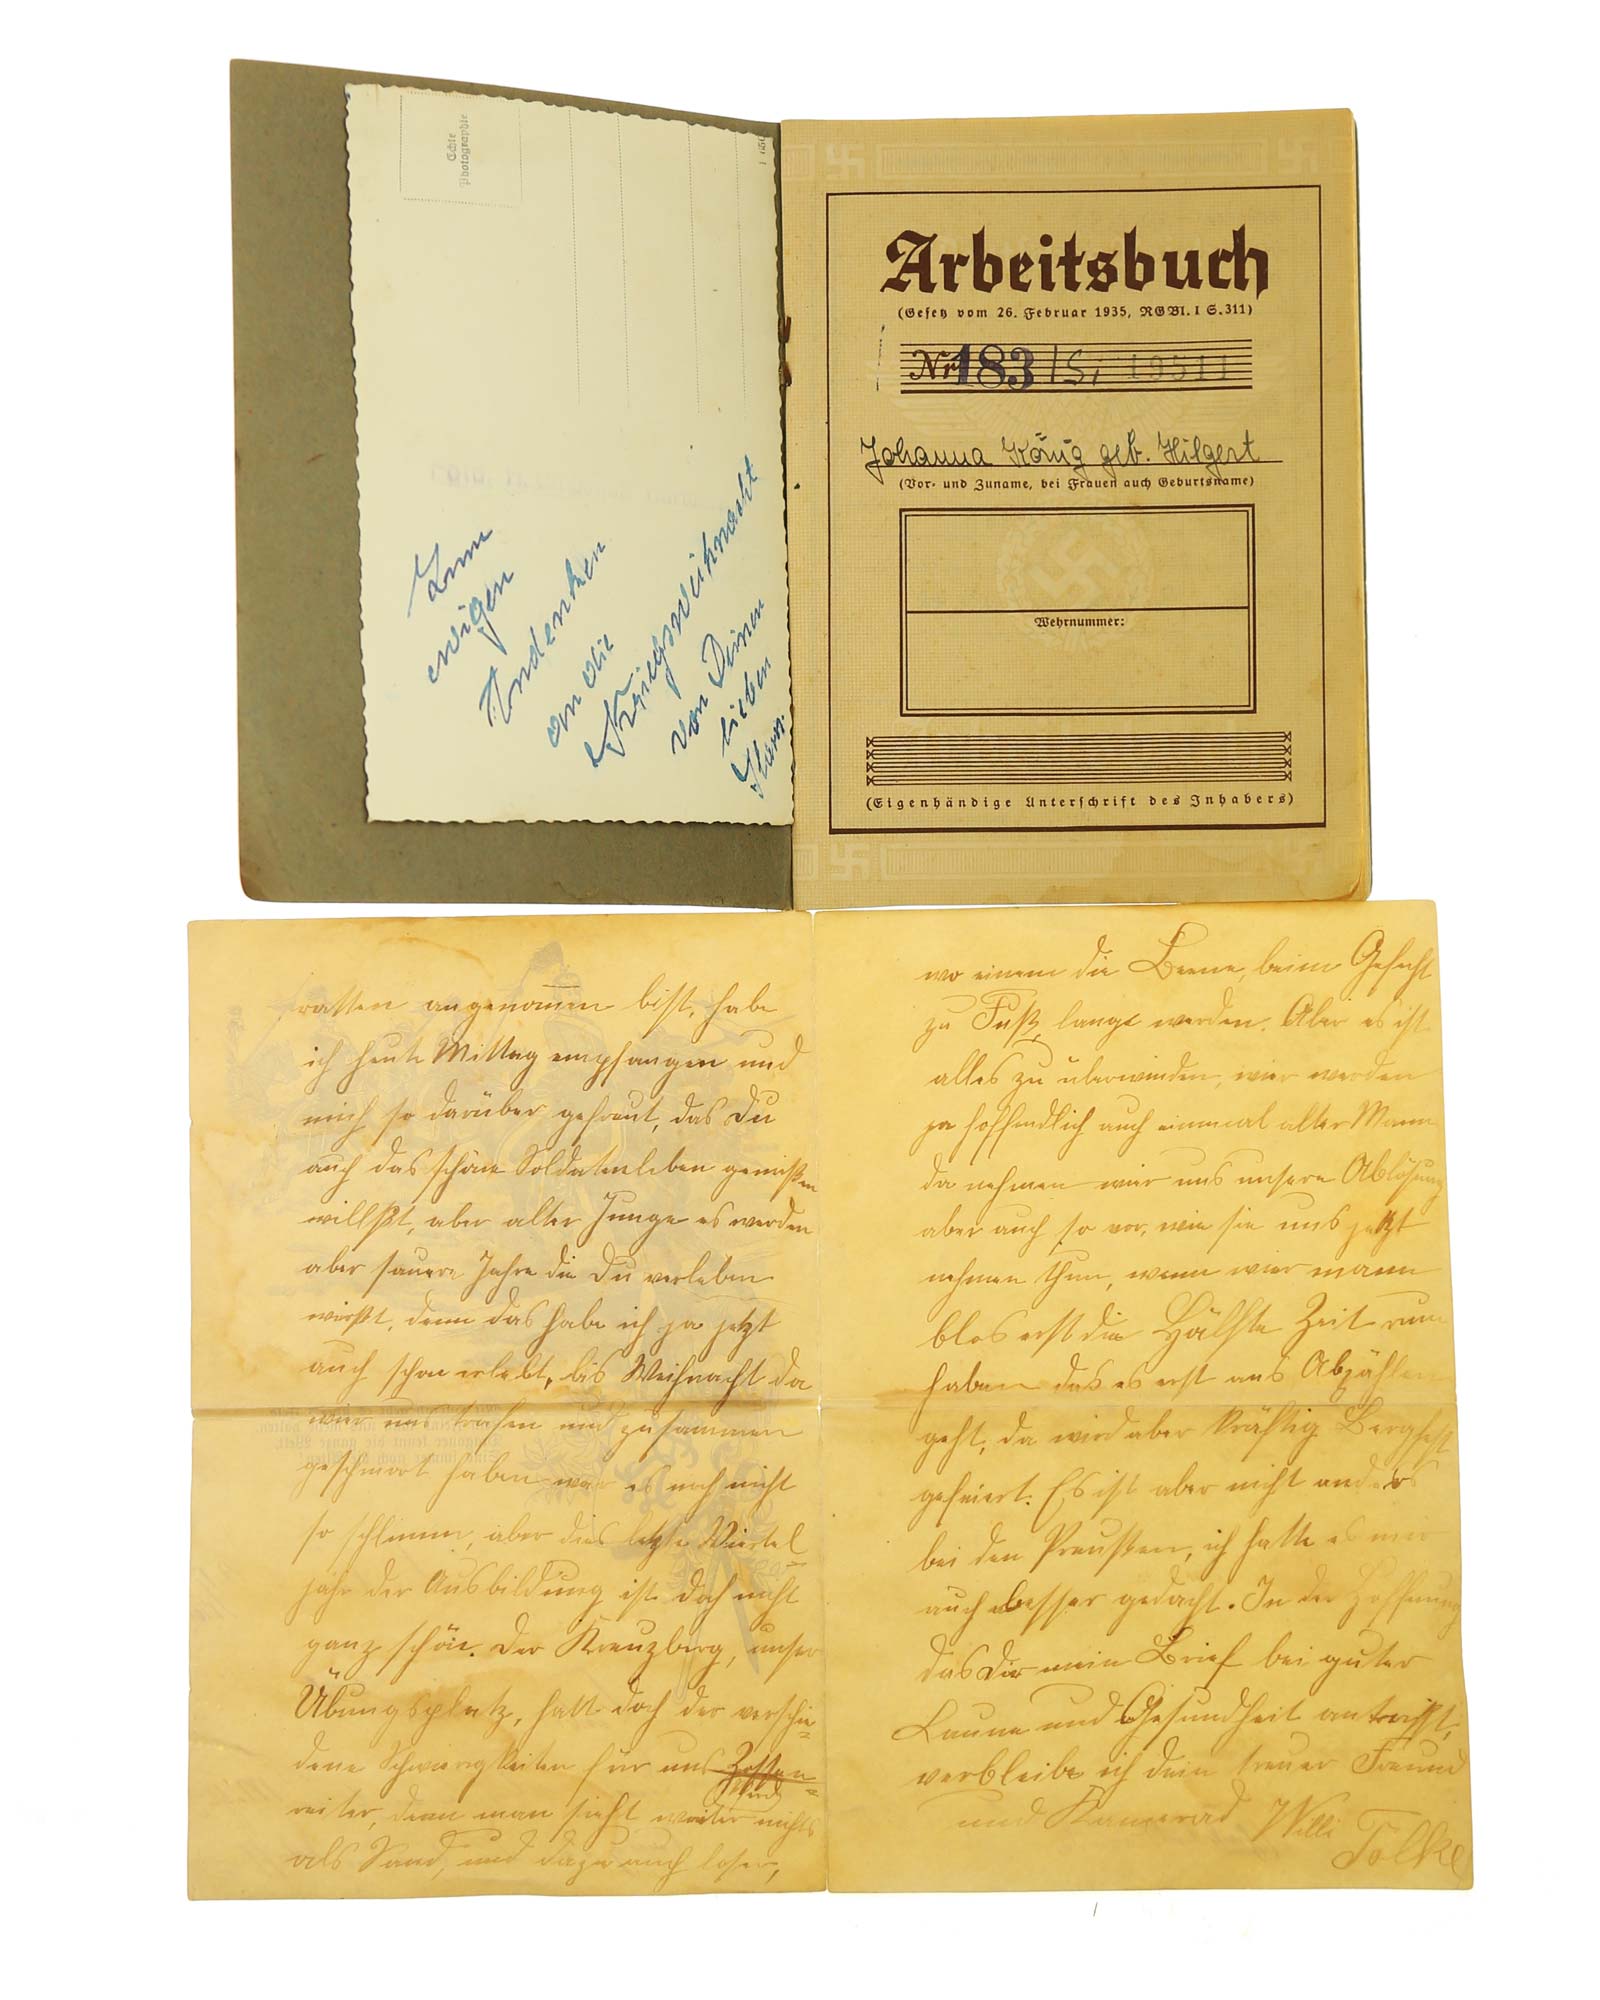 Echte
Photographie
Zum
ewigen
Andenken
an die
Kriegsweihnacht
von Deinem
lieben
Hans.
Arbeitsbuch
(Gesetz vom 26. Februar 1935, RGBl. I S. 311)
Nr. 183/Si 19511
Johanna König geb. Hilgert
(Vor- und Zuname, bei Frauen auch Geburtsname)
Wehrnummer:
(Eigenhändige Unterschrift des Inhabers)
ratten angenommen bist, habe
ich heute Mittag empfangen und
mich so darüber gefreut, das Du
auch das schöne Soldatenleben genießen
willßt, aber alter Junge es werden
aber sauere Jahre die Du verleben
wirßt, denn das habe ich ja jetzt
auch schon erlebt, bis Weihnacht da
wier uns trafen und zusammen
geschmort haben war es noch nicht
so schlimm, aber dies letzte Viertel=
jahr der Ausbildung ist doch nicht
ganz schön. Der Kreuzberg, unser
Übungsplatz, hatt doch der verschie=
dene Schwierigkeiten für uns
reiter, denn man sieht weiter nichts
als Sand, und dazu auch loser,
wo einem die Beene, beim Gefecht
zu Fuß, lange werden. Aber es ist
alles zu überwinden, wier werden
ja hoffendlich auch einmal alter Mann
da nehmen wier uns unsere Ablösung
aber auch so vor, wie sie uns jetzt
nehmen thun, wenn wier mann
blos erst die Hälfte Zeit rum
haben das es erst ans Abzählen
geht, da wird aber kräftig Bergfest
gefeiert. Es ist aber nicht anders
bei den Preußen, ich hatte es mir
auch besser gedacht. In der Hoffnung
das Dir mein Brief bei guter
Laune und Gesundheit antrifft,
verbleibe ich dein treuer Freund
und Kamerad Willi
Tolke